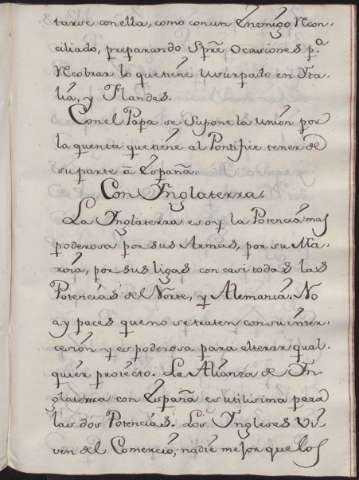 tarse con ella, como con un Enemigo Recon-
ciliado, preparando Spre. Ocasiones pa.
Recobrar lo que tiene usurpado en Ita-
lia, y Flandes.
Con el Papa se supone la union por
la quenta que tiene al Pontifize tener de
su parte â España.
Con Inglaterra.
La Inglaterra es oy la Potencia mas
poderosa por sus Armas, por su Ma-
rina, por sus ligas con casi todas las
Potencias del Norte, y Alemania. No
ay paces que no se traten con su inter-
cesion y es poderosa para alterar qual-
quier proiecto. La Alianza de In-
glaterra con España es utilisima para
las dos Potencias. Los Ingleses vi-
ven del Comercio, nadie mejor que los